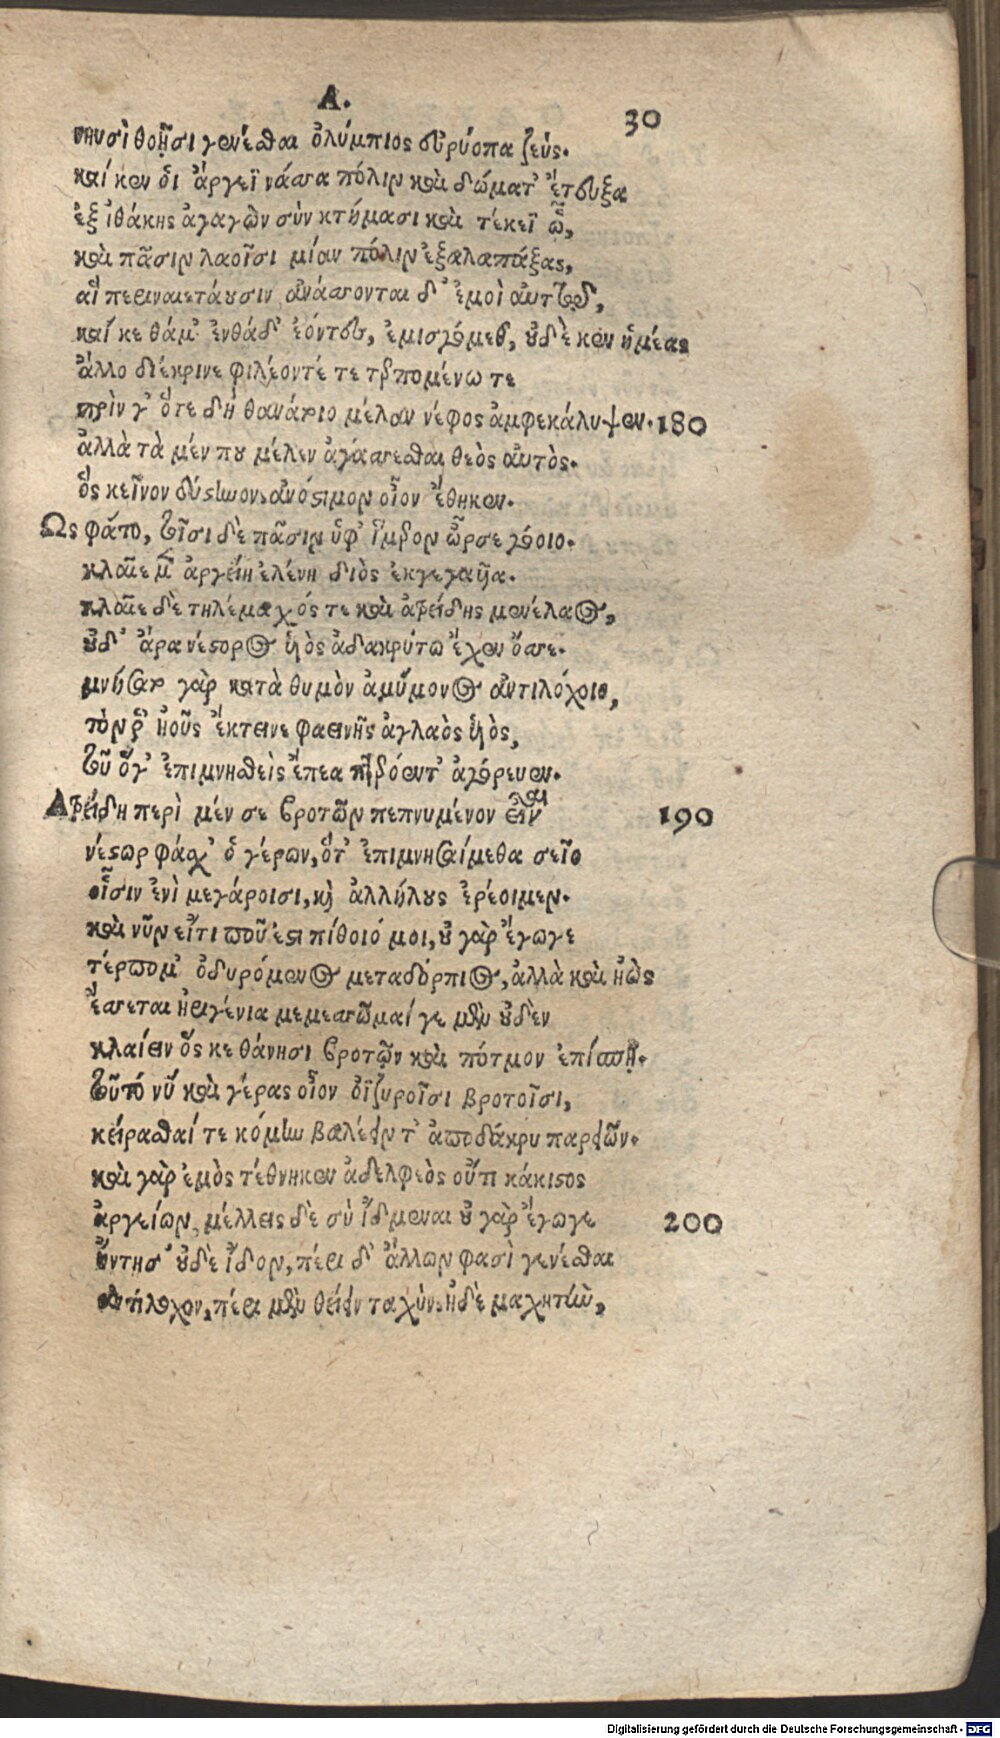 Δ.
30
νηυσὶ θοῇσι γενέσθαι ὀλύμπιος εὐρύοπα ζεύς.
καί κεν ὁι ἄργεϊ νάσσα πόλιν καὶ δώματ' ἔτευξα
ἐξ ἰθάκης ἀγαγὼν σὺν κτήμασι καὶ τέκεϊ ᾧ,
καὶ πᾶσιν λαοῖσι μίαν πόλιν ἐξαλαπάξας,
αἳ περιναιετάουσιν ἀνάσσονται δ' ἐμοὶ αὐτῷ,
καί κε θάμ' ἐνθάδ' ἐόντες, ἐμισγόμεθ, οὐδὲ κεν ἡμέας
ἄλλο διέκρινε φιλέοντέ τε τερπομένω τε
πρὶν γ' ὅτε δὴ θανάτοιο μέλαν νέφος ἀμφεκάλυψεν. 180
ἀλλὰ τὰ μέν που μέλεν ἀγάσσεσθαι θεὸς αὐτὸς.
ὃς κεῖνον δύστηνον, ἀνόστιμον οἶον ἔθηκεν.
Ως φάτο, τοῖσι δὲ πᾶσιν ὑφ' ἵμερον ὦρσε γόοιο.
κλαῖε μὲν ἀργείη ἑλένη διὸς ἐκγεγαυῖα.
κλαῖε δὲ τηλέμαχός τε καὶ ἀτρείδης μενέλαος,
οὐδ' ἄρα νέστορος ὑιὸς ἀδακρύτω ἔχεν ὄσσε.
μνήσατο γὰρ κατὰ θυμὸν ἀμύμονος ἀντιλόχοιο,
τὸν ῥ' ἠοῦς ἔκτεινε φαεινῆς ἀγλαὸς ὑιὸς,
τοῦ ὅγ' ἐπιμνησθεὶς ἔπεα πτερόεντ' ἀγόρευεν.
Ατρείδη περὶ μέν σε βροτῶν πεπνυμένον εἶναι 190
νέστωρ φάσχ' ὁ γέρων, ὅτ' ἐπιμνησαίμεθα σεῖο
οἷσιν ἐνὶ μεγάροισι, καὶ ἀλλήλους ἐρέοιμεν.
καὶ νῦν εἴτι που ἔστι πίθοιό μοι, οὐ γὰρ ἔγωγε
τέρπομ' ὀδυρόμενος μεταδόρπιος, ἀλλὰ καὶ ἠὼς
ἔσσεται ἠριγένια μεμεσσῶμαί γε μὲν οὐδὲν
κλαίειν ὅς κε θάνησι βροτῶν καὶ πότμον ἐπίσπῃ.
τοῦτό νῦ καὶ γέρας οἶον ὀϊζυροῖσι βροτοῖσι,
κείρασθαί τε κόμην βαλέειν τ' ἀπο δάκρυ παρειῶν.
καὶ γὰρ ἐμὸς τέθνηκεν ἀδελφεὸς οὔτι κάκιστος
ἀργείων, μέλλεις δὲ σὺ ἴδμεναι οὐ γὰρ ἔγωγε 200
ἤντησ' οὐδὲ ἴδον, πέρι δ' ἄλλων φασὶ γενέσθαι
ἀντίλοχον, πέρι μὲν θείειν ταχὺν, ἠδὲ μαχητὴν,
Digitalisierung gefördert durch die Deutsche Forschungsgemeinschaft - DFG